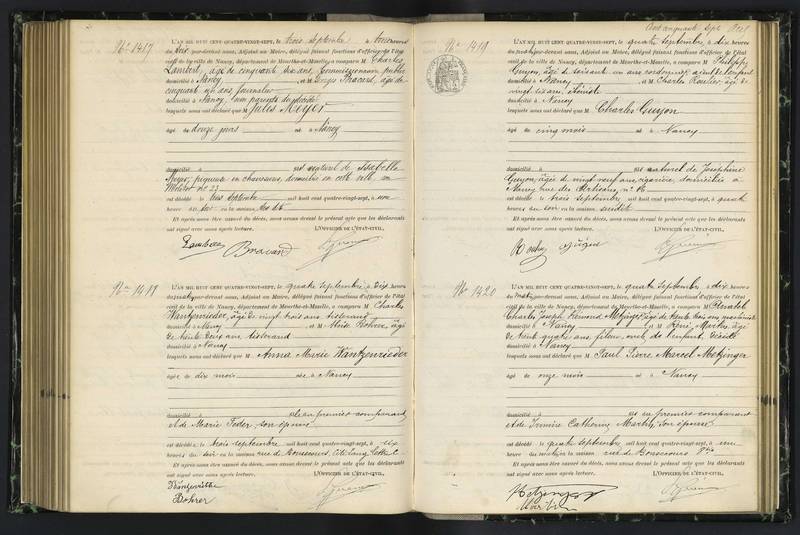 No 1417
L'AN MIL HUIT CENT QUATRE-VINGT-SEPT, le trois septembre à onze heures
du soir par-devant nous, Adjoint au Maire, délégué faisant fonctions d'officier de l'état
civil de la ville de Nancy, département de Meurthe-et-Moselle, a comparu M Charles
Lambert, âgé de cinquante six ans, Commissionnaire public
domicilié à Nancy et M Georges Bravard, âgé de
cinquante un ans, journalier
domicilié à Nancy, non parents du décédé
lesquels nous ont déclaré que M Jules Meyer
âgé de douze jours né à Nancy
domicilié à est naturel de Isabelle
Meyer, piqueuse en chaussures, domiciliée en cette ville, rue
Molitor no 23
est décédé le trois septembre mil huit cent quatre-vingt-sept, à
heures du soir en la maison
Et après nous être assuré du décès, nous avons dressé le présent acte que les déclarants
ont signé avec nous après lecture. L'OFFICIER DE L'ÉTAT-CIVIL,
Lambert Bravard
No 1418
L'AN MIL HUIT CENT QUATRE-VINGT-SEPT, le quatre septembre, à dix heures
du matin par-devant nous, Adjoint au Maire, délégué faisant fonctions d'officier de l'état
civil de la ville de Nancy, département de Meurthe-et-Moselle, a comparu M Charles
Wantzenrieder, âgé de vingt trois ans, tisserand
domicilié à Nancy et M Aloïse Bohrer, âgé
de trente deux ans, tisserand
domicilié à Nancy
lesquels nous ont déclaré que M Anna Marie Wantzenrieder
âgée de dix mois née à Nancy
domicilié à est du premier comparant
et de Marie Feder, son épouse
est décédée le trois septembre mil huit cent quatre-vingt-sept, à six
heures du soir en la maison rue de Bonsecours, Cité
Et après nous être assuré du décès, nous avons dressé le présent acte que les déclarants
ont signé avec nous après lecture. L'OFFICIER DE L'ÉTAT-CIVIL,
Bohrer
Cent cinquante sept
No 1419
L'AN MIL HUIT CENT QUATRE-VINGT-SEPT, le quatre septembre, à dix heures
du matin par-devant nous, Adjoint au Maire, délégué faisant fonctions d'officier de l'état
civil de la ville de Nancy, département de Meurthe-et-Moselle, a comparu M Philippe
Guyon, âgé de soixante un ans, cordonnier, aïeul de l'enfant
domicilié à Nancy et M Charles Rouher, âgé de
vingt six ans, ébéniste
domicilié à Nancy
lesquels nous ont déclaré que M Charles Guyon
âgé de cinq mois né à Nancy
domicilié à est naturel de Joséphine
Guyon, âgée de vingt neuf ans, cigarière, domiciliée à
Nancy, rue des Artisans, no 16
est décédé le trois septembre mil huit cent quatre-vingt-sept, à quatre
heures du soir en la maison susdite
Et après nous être assuré du décès, nous avons dressé le présent acte que les déclarants
ont signé avec nous après lecture. L'OFFICIER DE L'ÉTAT-CIVIL,
No 1420
L'AN MIL HUIT CENT QUATRE-VINGT-SEPT, le quatre septembre à dix heures
du matin par-devant nous, Adjoint au Maire, délégué faisant fonctions d'officier de l'état
civil de la ville de Nancy, département de Meurthe-et-Moselle, a comparu M
Charles Joseph Fernand Metzinger, âgé de trente trois ans, mécanicien
domicilié à Nancy et M René Martin, âgé
de trente quatre ans, fileur, oncle de l'enfant décédé
domicilié à Nancy
lesquels nous ont déclaré que M Paul Pierre Marcel Metzinger
âgé de onze mois né à Nancy
domicilié à est du premier comparant
et de Irmine Catherine Marthe, son épouse
est décédé le quatre septembre mil huit cent quatre-vingt-sept, à une
heure du matin en la maison rue de Bonsecours
Et après nous être assuré du décès, nous avons dressé le présent acte que les déclarants
ont signé avec nous après lecture. L'OFFICIER DE L'ÉTAT-CIVIL,
Metzinger